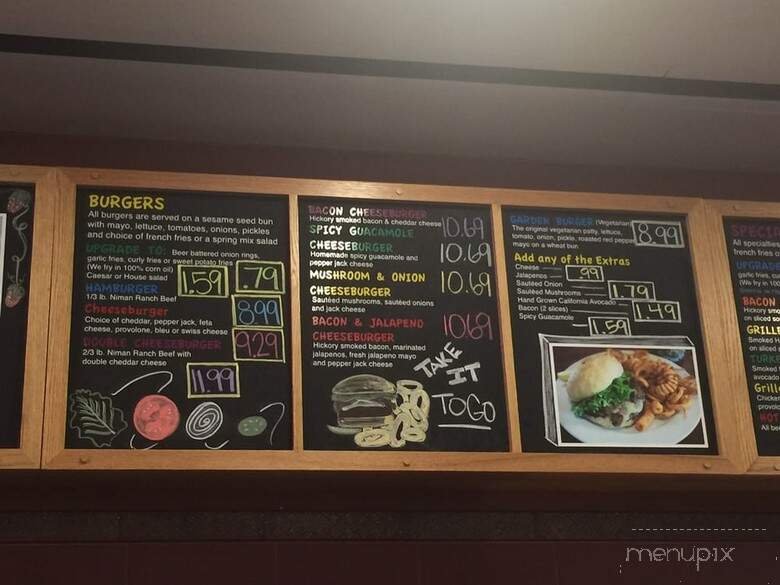 BURGERS
All burgers are served on a sesame seed bun
with mayo, lettuce, tomatoes, onions, pickles
and choice of french fries or a spring mix salad
UPGRADE TO: Beer battered onion rings,
garlic fries, curly fries or sweet potato fries
(We fry in 100% corn oil) 1.59 .79
Caesar or House salad
HAMBURGER 8.99
1/3 lb. Niman Ranch Beef
Cheeseburger 9.29
Choice of cheddar, pepper jack, feta
cheese, provolone, bleu or swiss cheese
DOUBLE CHEESEBURGER 11.99
2/3 lb. Niman Ranch Beef with
double cheddar cheese
BACON CHEESEBURGER 10.69
Hickory smoked bacon & cheddar cheese
SPICY GUACAMOLE
CHEESEBURGER 10.69
Homemade spicy guacamole and
pepper jack cheese
MUSHROOM & ONION 10.69
CHEESEBURGER
Sautéed mushrooms, sautéed onions
and jack cheese
BACON & JALAPENO 10.69
CHEESEBURGER
Hickory smoked bacon, marinated
jalapenos, fresh jalapeno mayo
and pepper jack cheese
TAKE
IT
TO GO
GARDEN BURGER (Vegetarian) 8.99
The original vegetarian patty, lettuce,
tomato, onion, pickle, roasted red pepper
mayo on a wheat bun
Add any of the Extras
Cheese .99
Jalapenos
Sautéed Onion
Sautéed Mushrooms 1.79
Hand Grown California Avocado
Bacon (2 slices) 1.49
Spicy Guacamole 1.59
SPECIA
All specialties
french fries o
UPGRADE
garlic fries, cu
(We fry in 100
BACON
Hickory smo
on sliced so
GRILLE
Smoked Ha
on sliced s
TURKE
Smoked t
avocado
Grille
Chicken
provolo
HOT
All bee
menupix